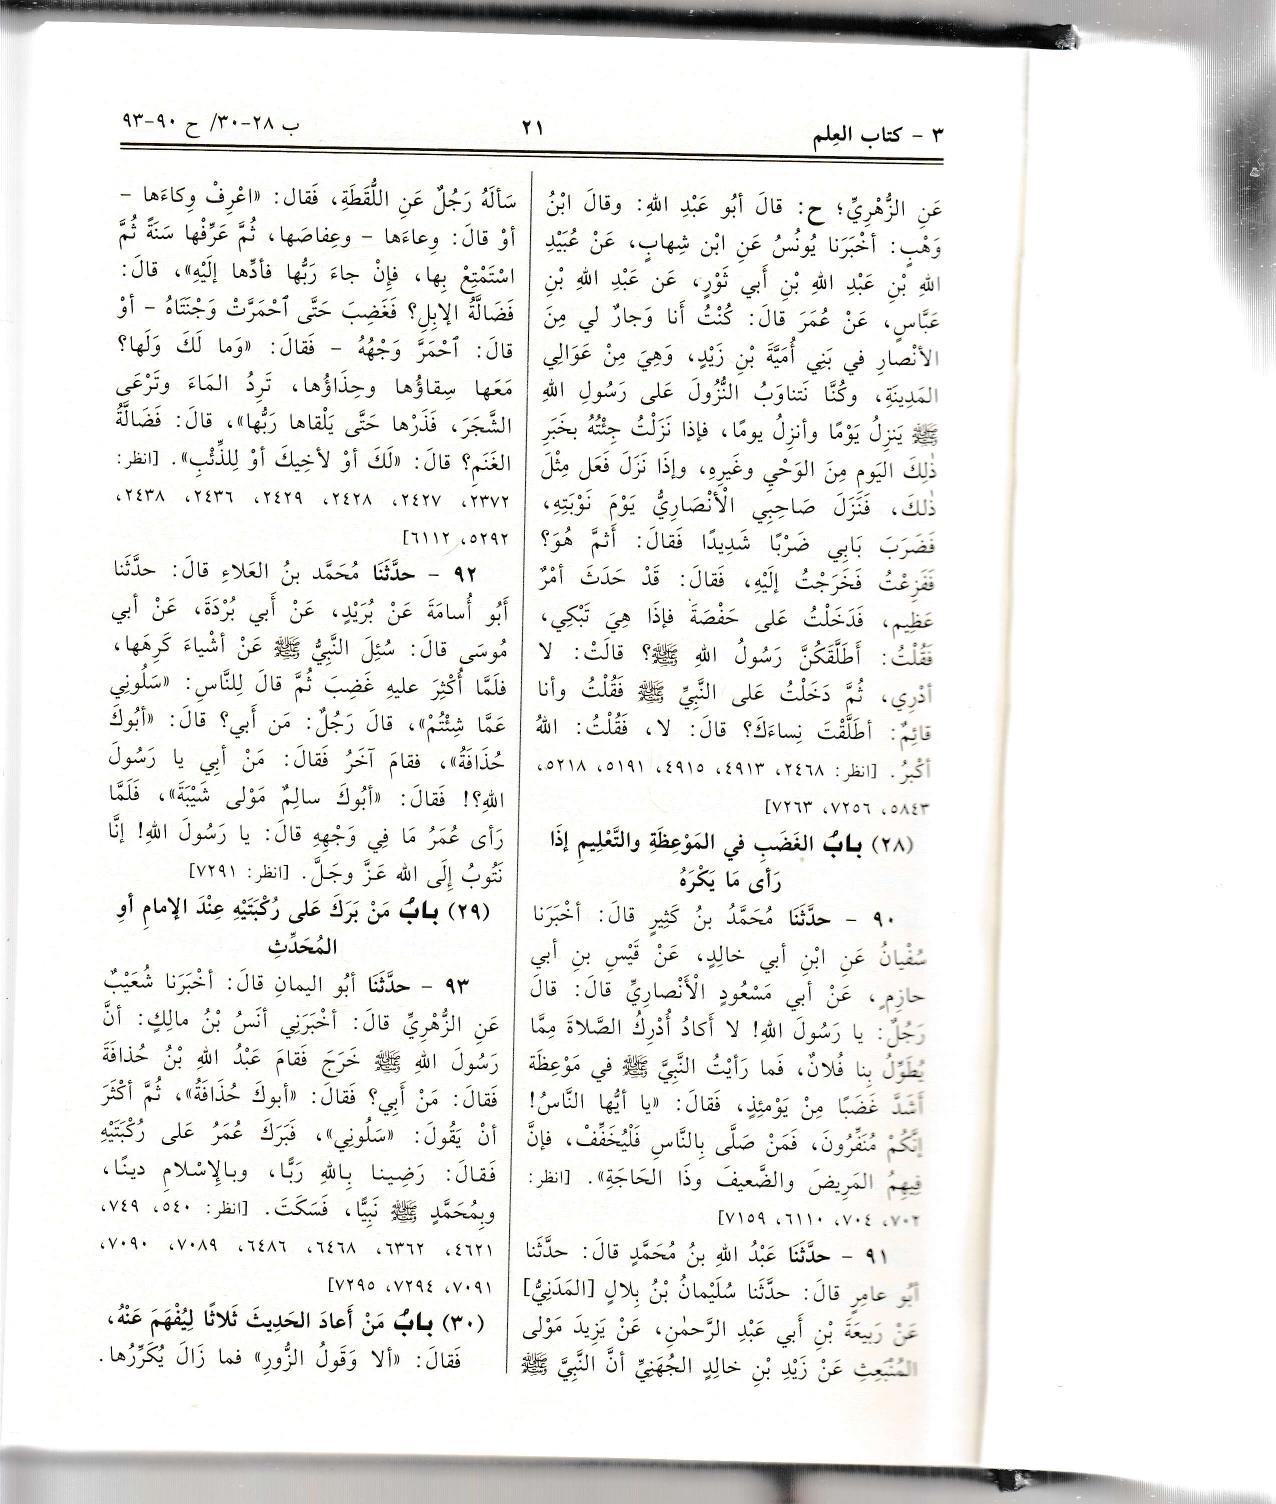 ٣ - كتاب العِلم
٢١
ب ٢٨-٣٠/ ح ٩٠-٩٣
عَنِ الزُّهْرِيِّ؛ ح: قالَ أبُو عَبْدِ اللهِ: وقالَ ابْنُ
وَهْبٍ: أخْبَرَنا يُونُسُ عَنِ ابْنِ شِهابٍ، عَنْ عُبَيْدِ
اللهِ بْنِ عَبْدِ اللهِ بْنِ أَبي ثَوْرٍ، عَن عَبْدِ اللهِ بْنِ
عَبَّاسٍ، عَنْ عُمَرَ قالَ: كُنْتُ أَنا وَجارٌ لي مِنَ
الأنْصارِ في بَنِي أُمَيَّةَ بْنِ زَيْدٍ، وَهِيَ مِنْ عَوَالِي
المَدِينَةِ، وكُنَّا نَتناوَبُ النُّزُولَ عَلى رَسُولِ اللهِ
ﷺ يَنزِلُ يَوْمًا وأنزِلُ يومًا، فإذا نَزَلْتُ جِئْتُهُ بخَبَرِ
ذٰلِكَ اليَوم مِنَ الوَحْيِ وغَيرِهِ، وإذَا نَزَلَ فَعَل مِثْلَ
ذٰلكَ، فَنَزَلَ صَاحِبِي الأَنْصَارِيُّ يَوْمَ نَوْبَتِهِ،
فَضَرَبَ بَابِي ضَرْبًا شَدِيدًا فَقالَ: أَثمَّ هُوَ؟
فَفَزِعْتُ فَخَرَجْتُ إلَيْهِ، فَقالَ: قَدْ حَدَثَ أمْرٌ
عَظِيم، فَدَخَلْتُ عَلى حَفْصَةَ فإذَا هِيَ تَبْكِي،
فَقُلْتُ: أَطَلَّقَكُنَّ رَسُولُ اللهِ ﷺ؟ قالَتْ: لا
أدْرِي، ثُمَّ دَخَلْتُ عَلى النَّبِيِّ ﷺ فَقُلْتُ وأنا
قائِمٌ: أطَلَّقْتَ نِساءَكَ؟ قالَ: لا، فَقُلْتُ: اللهُ
أكْبرُ. [انظر: ٢٤٦٨، ٤٩١٣، ٤٩١٥، ٥١٩١، ٥٢١٨،
٥٨٤٣، ٧٢٥٦، ٧٢٦٣]
(٢٨) بابُ الغَضَبِ في المَوْعِظَةِ والتَّعْلِيمِ إذَا
رَأى مَا يَكْرَهُ
٩٠ - حدَّثَنَا مُحَمَّدُ بنُ كَثِيرٍ قالَ: أخْبَرَنا
سُفْيانُ عَنِ ابْنِ أبي خالِدٍ، عَنْ قَيْسِ بنِ أبي
حازِمٍ، عَنْ أبي مَسْعُودٍ الأَنْصارِيِّ قالَ: قالَ
رَجُلٌ: يا رَسُولَ اللهِ! لا أكادُ أُدْرِكُ الصَّلاةَ مِمَّا
يُطَوِّلُ بِنا فُلانٌ، فَما رَأيْتُ النَّبِيَّ ﷺ في مَوْعِظَة
أشَدَّ غَضَبًا مِنْ يَوْمِئِذٍ، فَقالَ: «يا أيُّها النَّاسُ!
إنَّكُمْ مُنَفِّرُونَ، فَمَنْ صَلَّى بِالنَّاسِ فَلْيُخَفِّفْ، فإنَّ
فِيهِمُ المَرِيضَ والضَّعيفَ وذَا الحَاجَةِ». [انظر:
٧٠٢، ٧٠٤، ٦١١٠، ٧١٥٩]
٩١ - حدَّثَنَا عَبْدُ اللهِ بنُ مُحَمَّدٍ قالَ: حدَّثَنَا
أبُو عامِرٍ قالَ: حدَّثَنا سُلَيْمانُ بْنُ بِلالٍ [المَدَنِيُّ]
عَنْ رَبِيعَةَ بْنِ أبي عَبْدِ الرَّحمٰنِ، عَنْ يَزِيدَ مَوْلى
المُنْبَعِثِ عَنْ زَيْدِ بْنِ خالِدٍ الجُهَنِيِّ أنَّ النَّبِيَّ ﷺ
سَألَهُ رَجُلٌ عَنِ اللُّقَطَةِ، فَقال: «اعْرِفْ وِكاءَها -
أوْ قالَ: وِعاءَها - وعِفاصَها، ثُمَّ عَرِّفْها سَنَةً ثُمَّ
اسْتَمْتِعْ بِها، فإنْ جاءَ رَبُّها فأدِّها إلَيْهِ»، قالَ:
فَضَالَّةُ الإبِلِ؟ فَغَضِبَ حَتَّى ٱحْمَرَّتْ وَجْنَتَاهُ - أوْ
قالَ: ٱحْمَرَّ وَجْهُهُ - فَقالَ: «وَما لَكَ وَلَها؟
مَعَها سِقاؤُها وحِذَاؤُها، تَرِدُ المَاءَ وتَرْعَى
الشَّجَرَ، فَذَرْها حَتَّى يَلْقاها رَبُّها»، قالَ: فَضَالَّةُ
الغَنَمِ؟ قالَ: «لَكَ أوْ لأخِيكَ أوْ لِلذِّئْبِ». [انظر:
٢٣٧٢، ٢٤٢٧، ٢٤٢٨، ٢٤٢٩، ٢٤٣٦، ٢٤٣٨،
٥٢٩٢، ٦١١٢]
٩٢ - حدَّثَنَا مُحَمَّد بنُ العَلاءِ قالَ: حدَّثَنا
أَبُو أُسامَةَ عَنْ بُرَيْدٍ، عَنْ أَبي بُرْدَةَ، عَنْ أبي
مُوسَى قالَ: سُئِلَ النَّبِيُّ ﷺ عَنْ أشْياءَ كَرِهَها،
فلَمَّا أُكْثِرَ عليهِ غَضِبَ ثُمَّ قالَ لِلنَّاسِ: «سَلُونِي
عَمَّا شِئْتُمْ»، قالَ رَجُلٌ: مَن أَبي؟ قالَ: «أبُوكَ
حُذَافَةُ»، فقامَ آخَرُ فَقالَ: مَنْ أبِي يا رَسُولَ
اللهِ؟! فَقالَ: «أبُوكَ سالِمٌ مَوْلى شَيْبَةَ»، فَلَمَّا
رَأى عُمَرُ مَا فِي وَجْهِهِ قالَ: يا رَسُولَ اللهِ! إنَّا
نَتُوبُ إلَى الله عَزَّ وجَلَّ. [انظر: ٧٢٩١]
(٢٩) بابُ مَنْ بَرَكَ عَلى رُكْبَتَيْهِ عِنْدَ الإمامِ أوِ
المُحَدِّثِ
٩٣ - حدَّثَنَا أبُو اليمانِ قالَ: أخْبَرَنا شُعَيْبٌ
عَنِ الزُّهْرِيِّ قالَ: أخْبَرَنِي أنَسُ بْنُ مالِكٍ: أنَّ
رَسُولَ اللهِ ﷺ خَرَجَ فَقامَ عَبْدُ اللهِ بْنُ حُذافَةَ
فَقالَ: مَنْ أبِي؟ فَقالَ: «أبوكَ حُذَافَةُ»، ثُمَّ أكْثَرَ
أنْ يَقُولَ: «سَلُونِي»، فَبَرَكَ عُمَرُ عَلى رُكْبَتَيْهِ
فَقالَ: رَضِينا بِاللهِ رَبًّا، وبالإِسْلامِ دينًا،
وبِمُحَمَّدٍ ﷺ نَبِيًّا، فَسَكَتَ. [انظر: ٥٤٠، ٧٤٩،
٤٦٢١، ٦٣٦٢، ٦٤٦٨، ٦٤٨٦، ٧٠٨٩، ٧٠٩٠،
٧٠٩١، ٧٢٩٤، ٧٢٩٥]
(٣٠) بابُ مَنْ أعادَ الحَدِيثَ ثَلاثًا لِيُفْهَمَ عَنْهُ،
فَقالَ: «ألا وَقَولُ الزُّورِ» فما زَالَ يُكَرِّرُها.